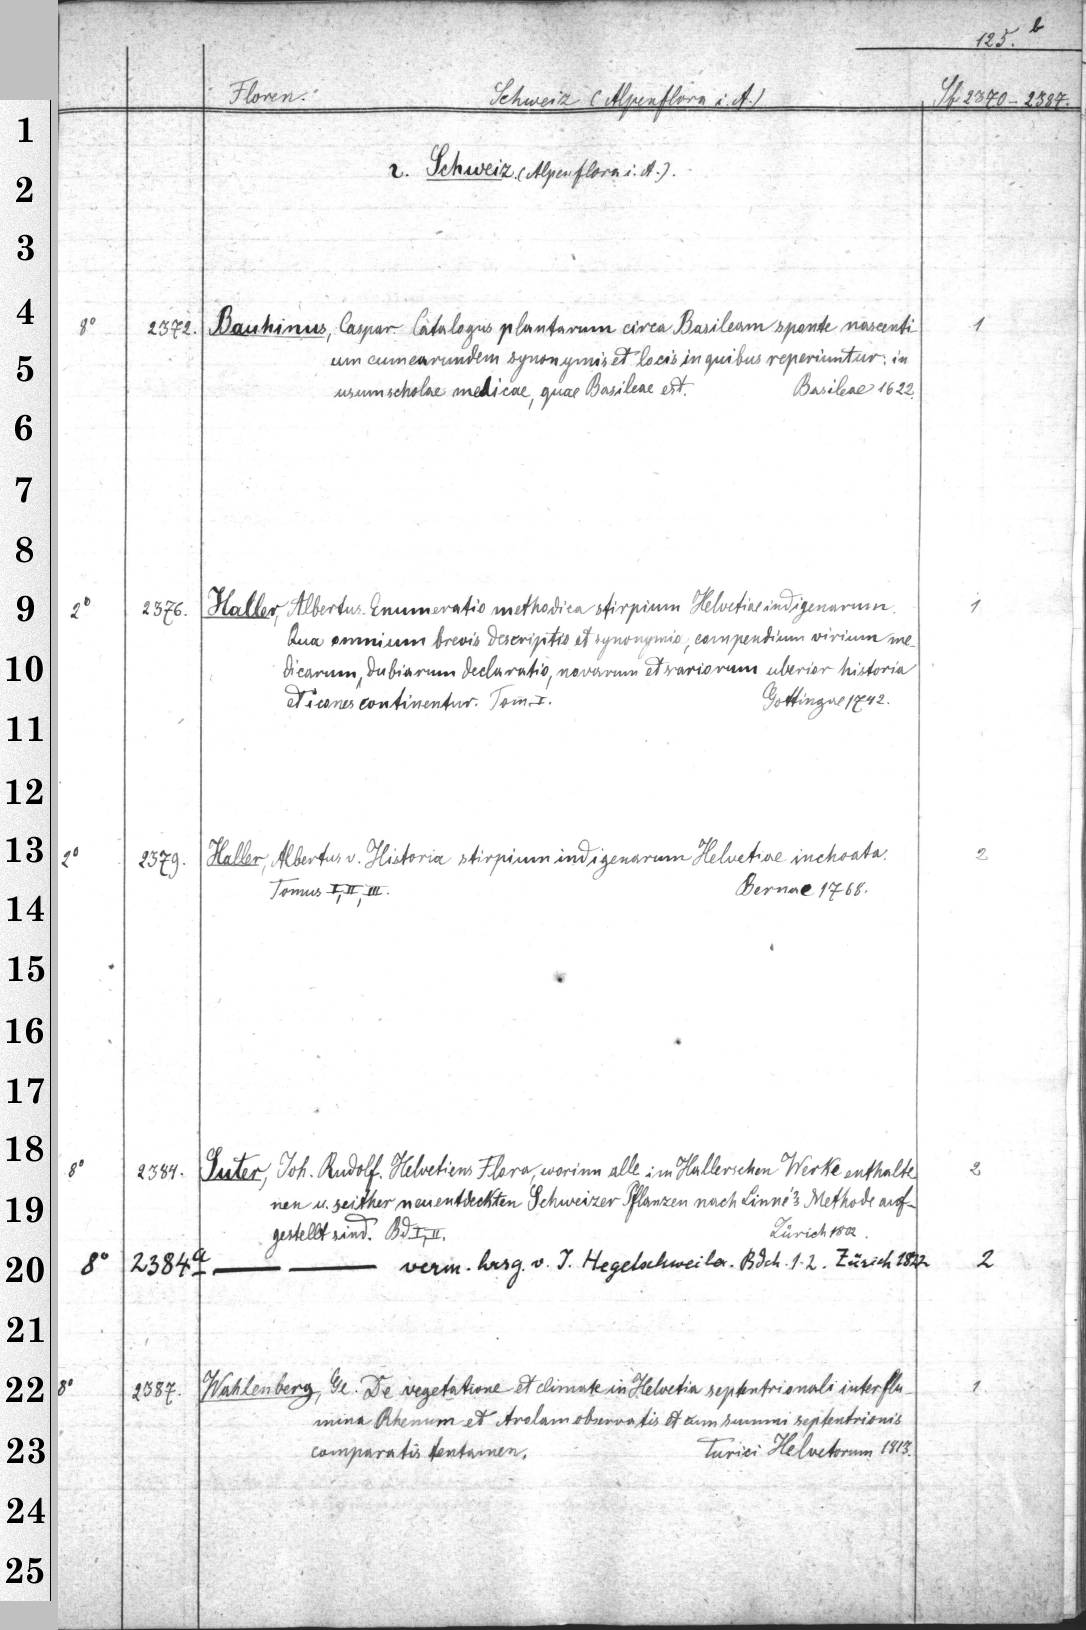 125. b
Floren. Schweiz (Alpenflora i. A.) Sf 2370-2387.
1
2. Schweiz. (Alpenflora i. A.).
2
3
4
8° 2372. Bauhinus, Caspar. Catalogus plantarum circa Basileam sponte nascenti 1
um cum earundem synonymis et locis in quibus reperiuntur: in
5
usum scholae medicae, quae Basileae est. Basileae 1622.
6
7
8
9 2° 2376. Haller, Albertus. Enumeratio methodica stirpium Helvetiae indigenarum. 1
Qua omnium brevis descriptio et synonymia, compendium virium me-
10 dicarum, dubiarum declaratio, novarum et rariorum uberior historia
et icones continentur. Tom. I. Gottingae 1742.
11
12
13 2° 2379. Haller, Albertus v. Historia stirpium indigenarum Helvetiae inchoata. 2
Tomus I, II, III. Bernae 1768.
14
15
16
17
18
8° 2384. Suter, Joh. Rudolf. Helvetiens Flora, worinn alle im Hallerschen Werke enthalte 2
19 nen u. seither neuentdeckten Schweizer Pflanzen nach Linné's Methode auf-
gestellt sind. Bd I, II. Zürich 1802.
20 8° 2384a — — verm. hrsg. v. J. Hegetschweiler. Bdch. 1-2. Zürich 1822 2
21
22 8° 2387. Wahlenberg, Ge. De vegetatione et climate in Helvetia septentrionali inter flu- 1
mina Rhenum et Arolam observatis et cum summi septentrionis
23 comparatis tentamen. Turici Helvetorum 1813.
24
25